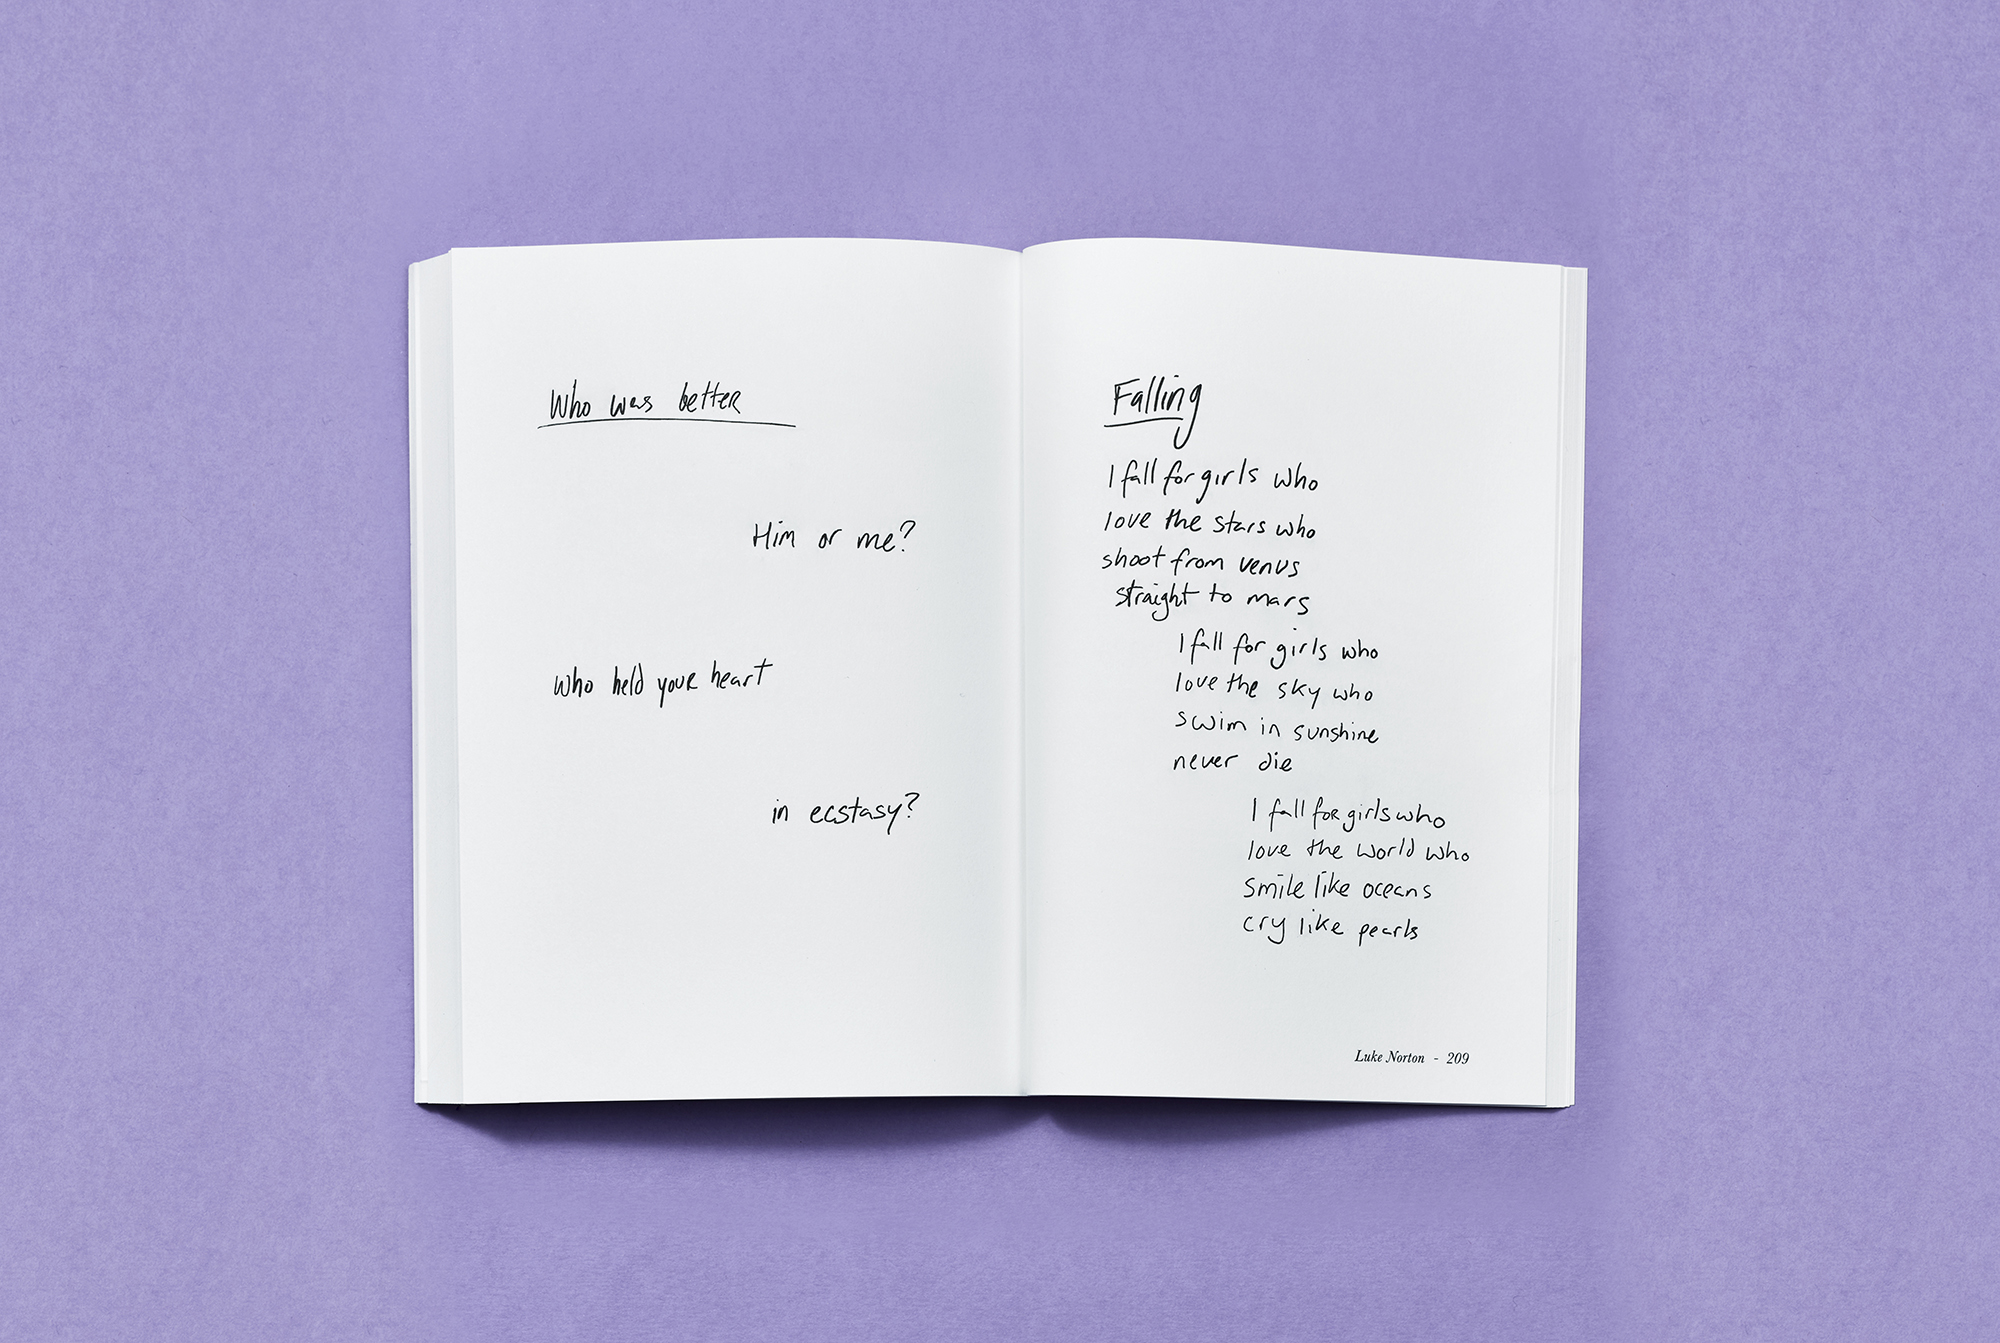 Who was better
Him or me?
who held your heart
in ecstasy?
Falling
I fall for girls who
love the stars who
shoot from venus
straight to mars
I fall for girls who
love the sky who
swim in sunshine
never die
I fall for girls who
love the world who
smile like oceans
cry like pearls
Luke Norton - 209